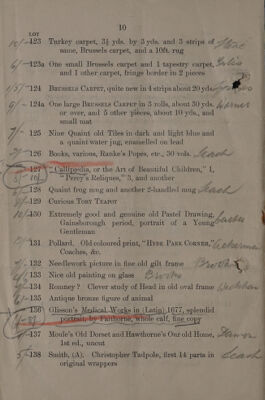 10
LOT
10/- 123 Turkey carpet, 3½ yds. by 3 yds. and 3 strips of
same, Brussels carpet, and a 10ft. rug
6/- 123a One small Brussels carpet and 1 tapestry carpet,
and 1 other carpet, fringe border in 2 pieces
124 BRUSSELS CARPET, quite new in 4 strips about 20 yds
124a One large BRUSSELS CARPET in 3 rolls, about 30 yds. Warner
or over, and 5 other pieces, about 10 yds., and
small mat
7/- 125 Nine Quaint old Tiles in dark and light blue and
a quaint water jug, enamelled on lead
126 Books, various, Ranke's Popes, etc., 30 vols. Leach
127 "Callipædia, or the Art of Beautiful Children," 1,
"Percy's Reliques," 3, and another
128 Quaint frog mug and another 2-handled mug Leach
129 Curious TOBY TEAPOT
10/- 130 Extremely good and genuine old Pastel Drawing,
Gainsborough period, portrait of a Young
Gentleman
131 Pollard. Old coloured print, "HYDE PARK CORNER,"
Coaches, &c.
132 Needlework picture in fine old gilt frame Brooks
133 Nice old painting on glass Brooks
134 Romney? Clever study of Head in oval frame
135 Antique bronze figure of animal
136 Glisson's Medical Works in (Latin) 1677, splendid
portrait, by Faithorne, whole calf, fine copy
137 Moule's Old Dorset and Hawthorne's Our old Home,
1st ed., uncut
138 Smith, (A). Christopher Tadpole, first 14 parts in Leach
original wrappers